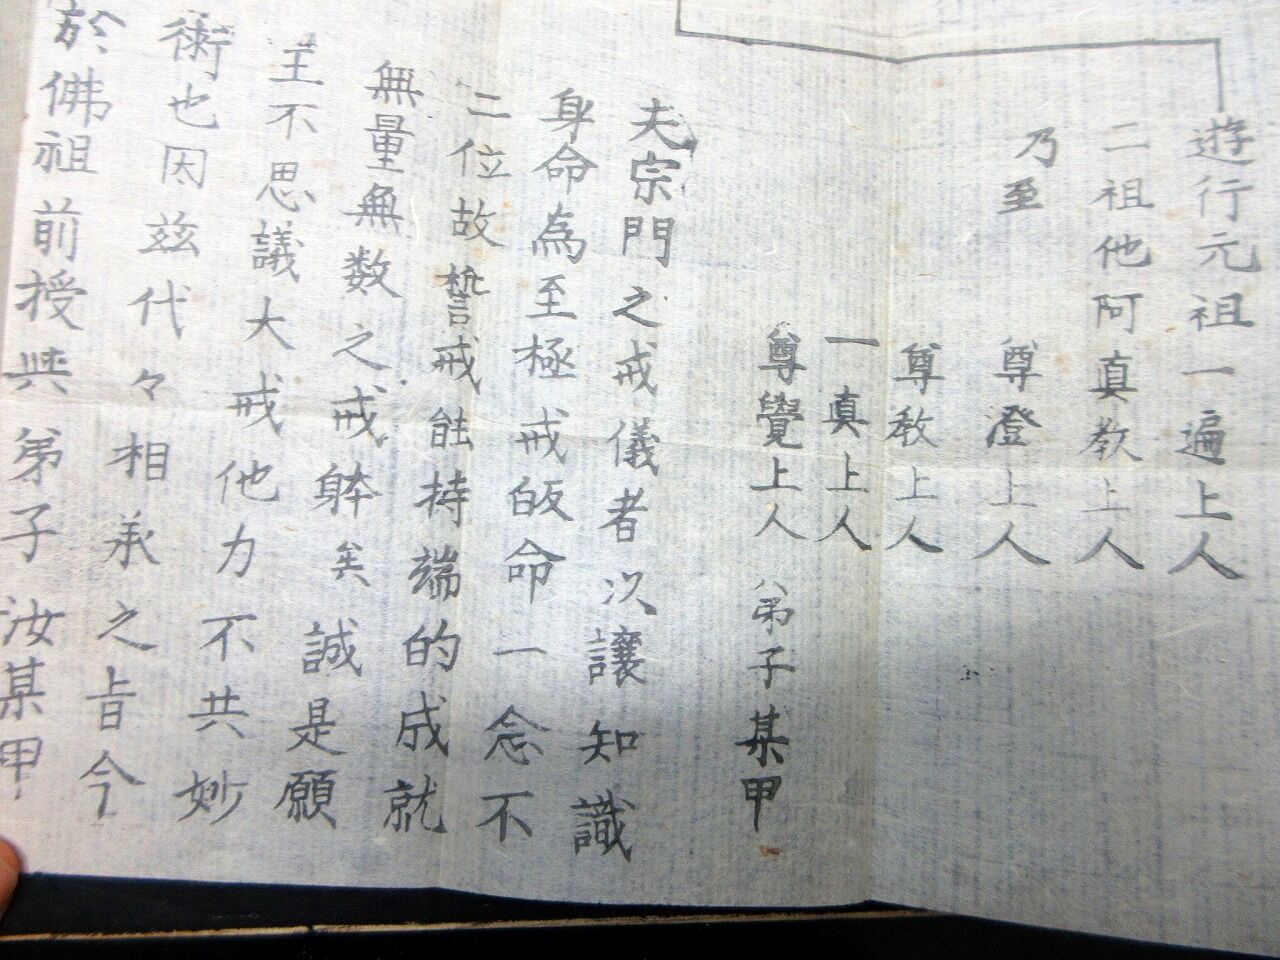 遊行元祖一遍上人
二祖他阿真教上人
乃至 尊澄上人
尊教上人
一真上人
尊覺上人 弟子某甲
夫宗門之戒儀者以讓知識
身命為至極戒皈命一念不
二位故誓戒能持端的成就
無量無数之戒躰矣誠是願
王不思議大戒他力不共妙
術也因茲代々相承之旨今
於佛祖前授與弟子汝某甲